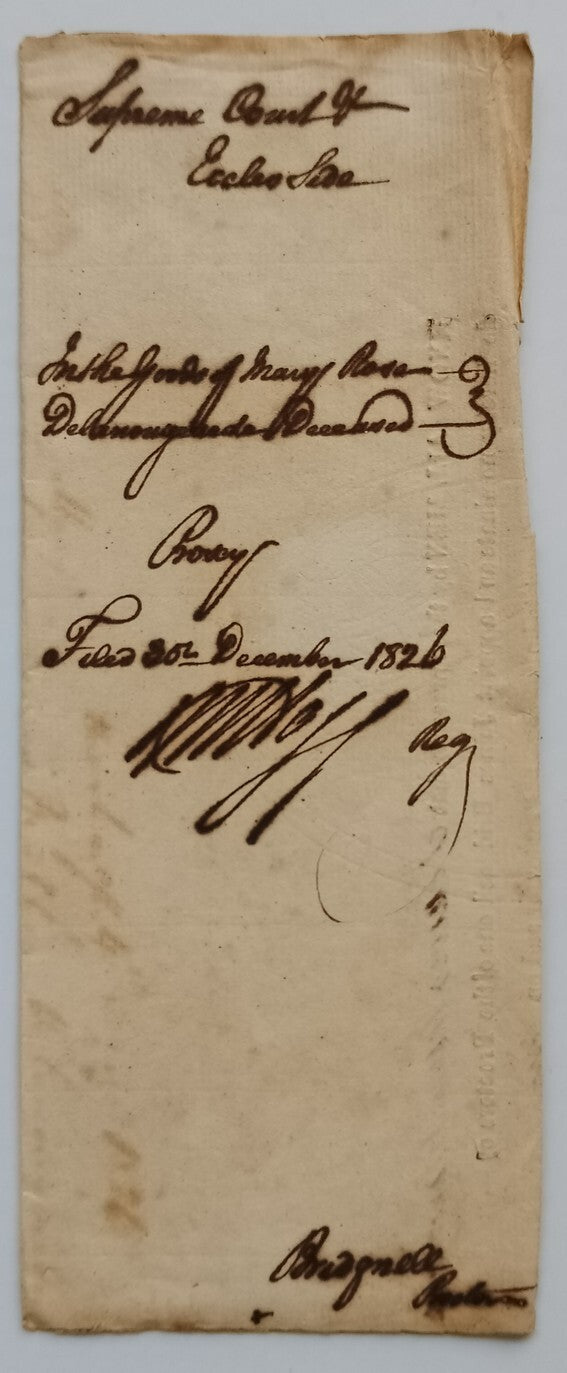 Supreme Court &c
Eccles Side
In the Goods of Mary Rose
Delanougerede Deceased
Proxy
Filed 30th December 1826
Reg
Bridgnell
Proctor